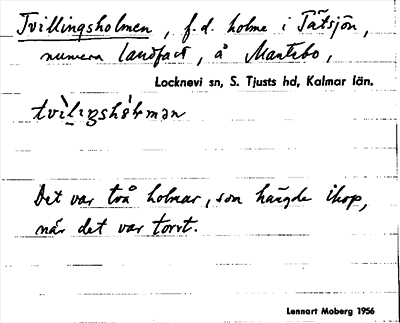 Tvillingsholmen, f.d. holme i Tåtsjön,
numera landfast, å Mantebo,
Locknevi sn, S. Tjusts hd, Kalmar län.
Det var två holmar, som hängde ihop,
när det var torrt.
Lennart Moberg 1956